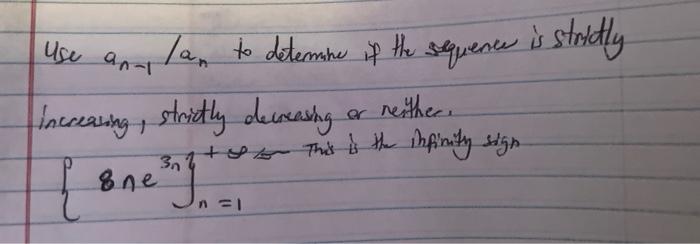 Use a_{n-1} / a_n to determine if the sequence is strictly
increasing, strictly decreasing or neither.
{ 8ne^{3n} }_{n=1}^{+∞} ← This is the infinity sign